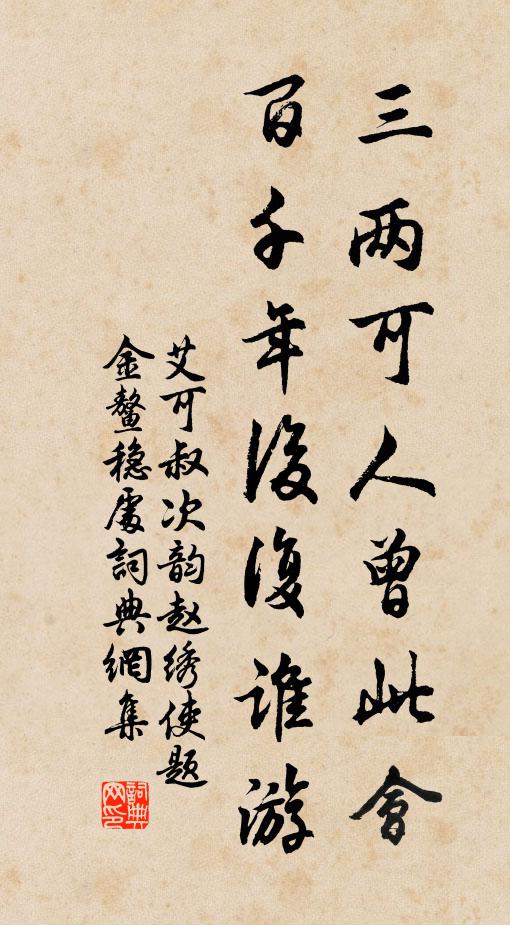 三两可人曾此會
百千年後復谁游
艾可叔次韵赵绣使题
金鳌稳處詞典網集
詞典网印